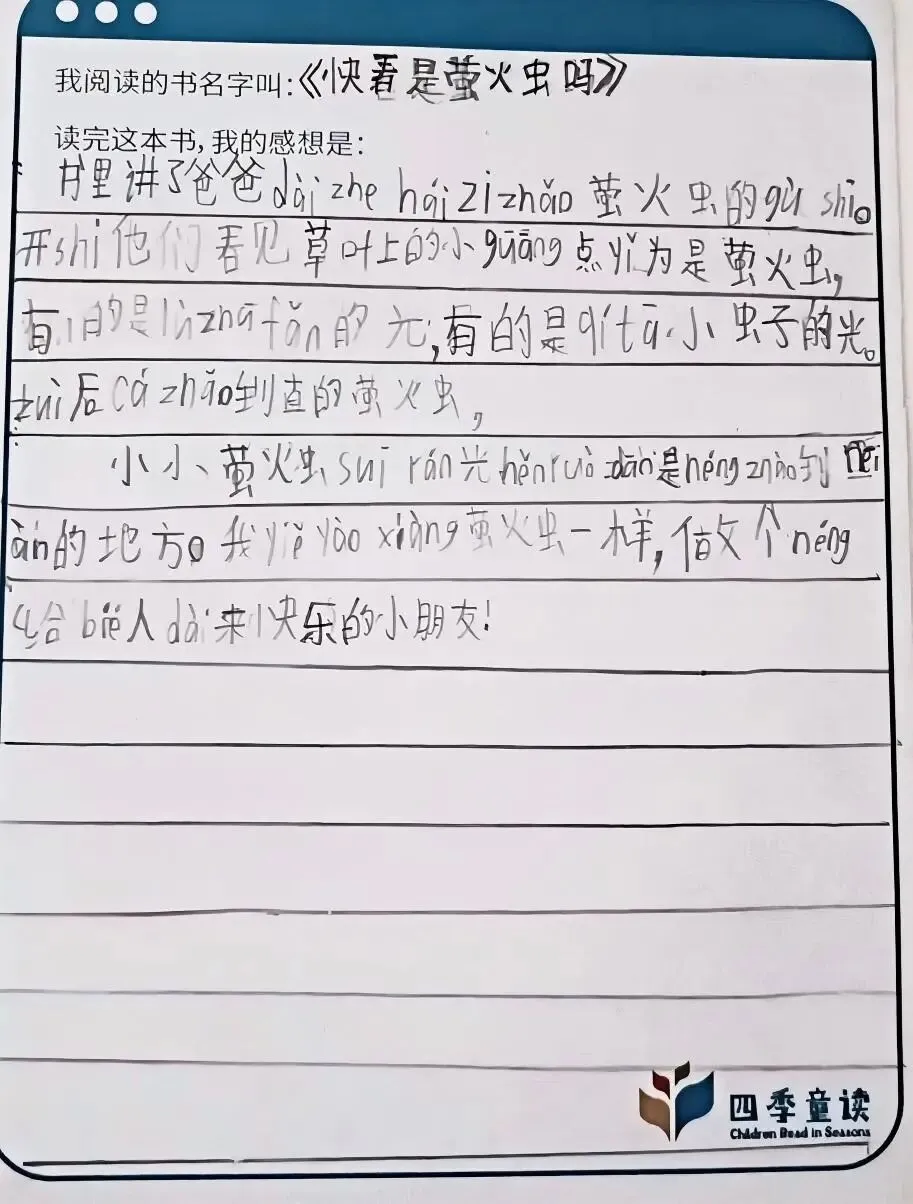 我阅读的书名字叫:《快看是萤火虫吗》
读完这本书,我的感想是:
书里讲了爸爸dài zhe hái zi zhǎo 萤火虫的gù shi。
开shǐ他们看见草叶上的小guāng点yǐ为是萤火虫,
有的是lù zhū fǎn的光,有的是qí tā小虫子的光。
zuì后cái zhǎo到真的萤火虫,
小小萤火虫suī rán光hěn ruò dàn是néng zhào到
àn的地方。我yiě yào xiàng萤火虫一样,做个néng
给bié人dài来快乐的小朋友!
四季童读
Children Read in Seasons